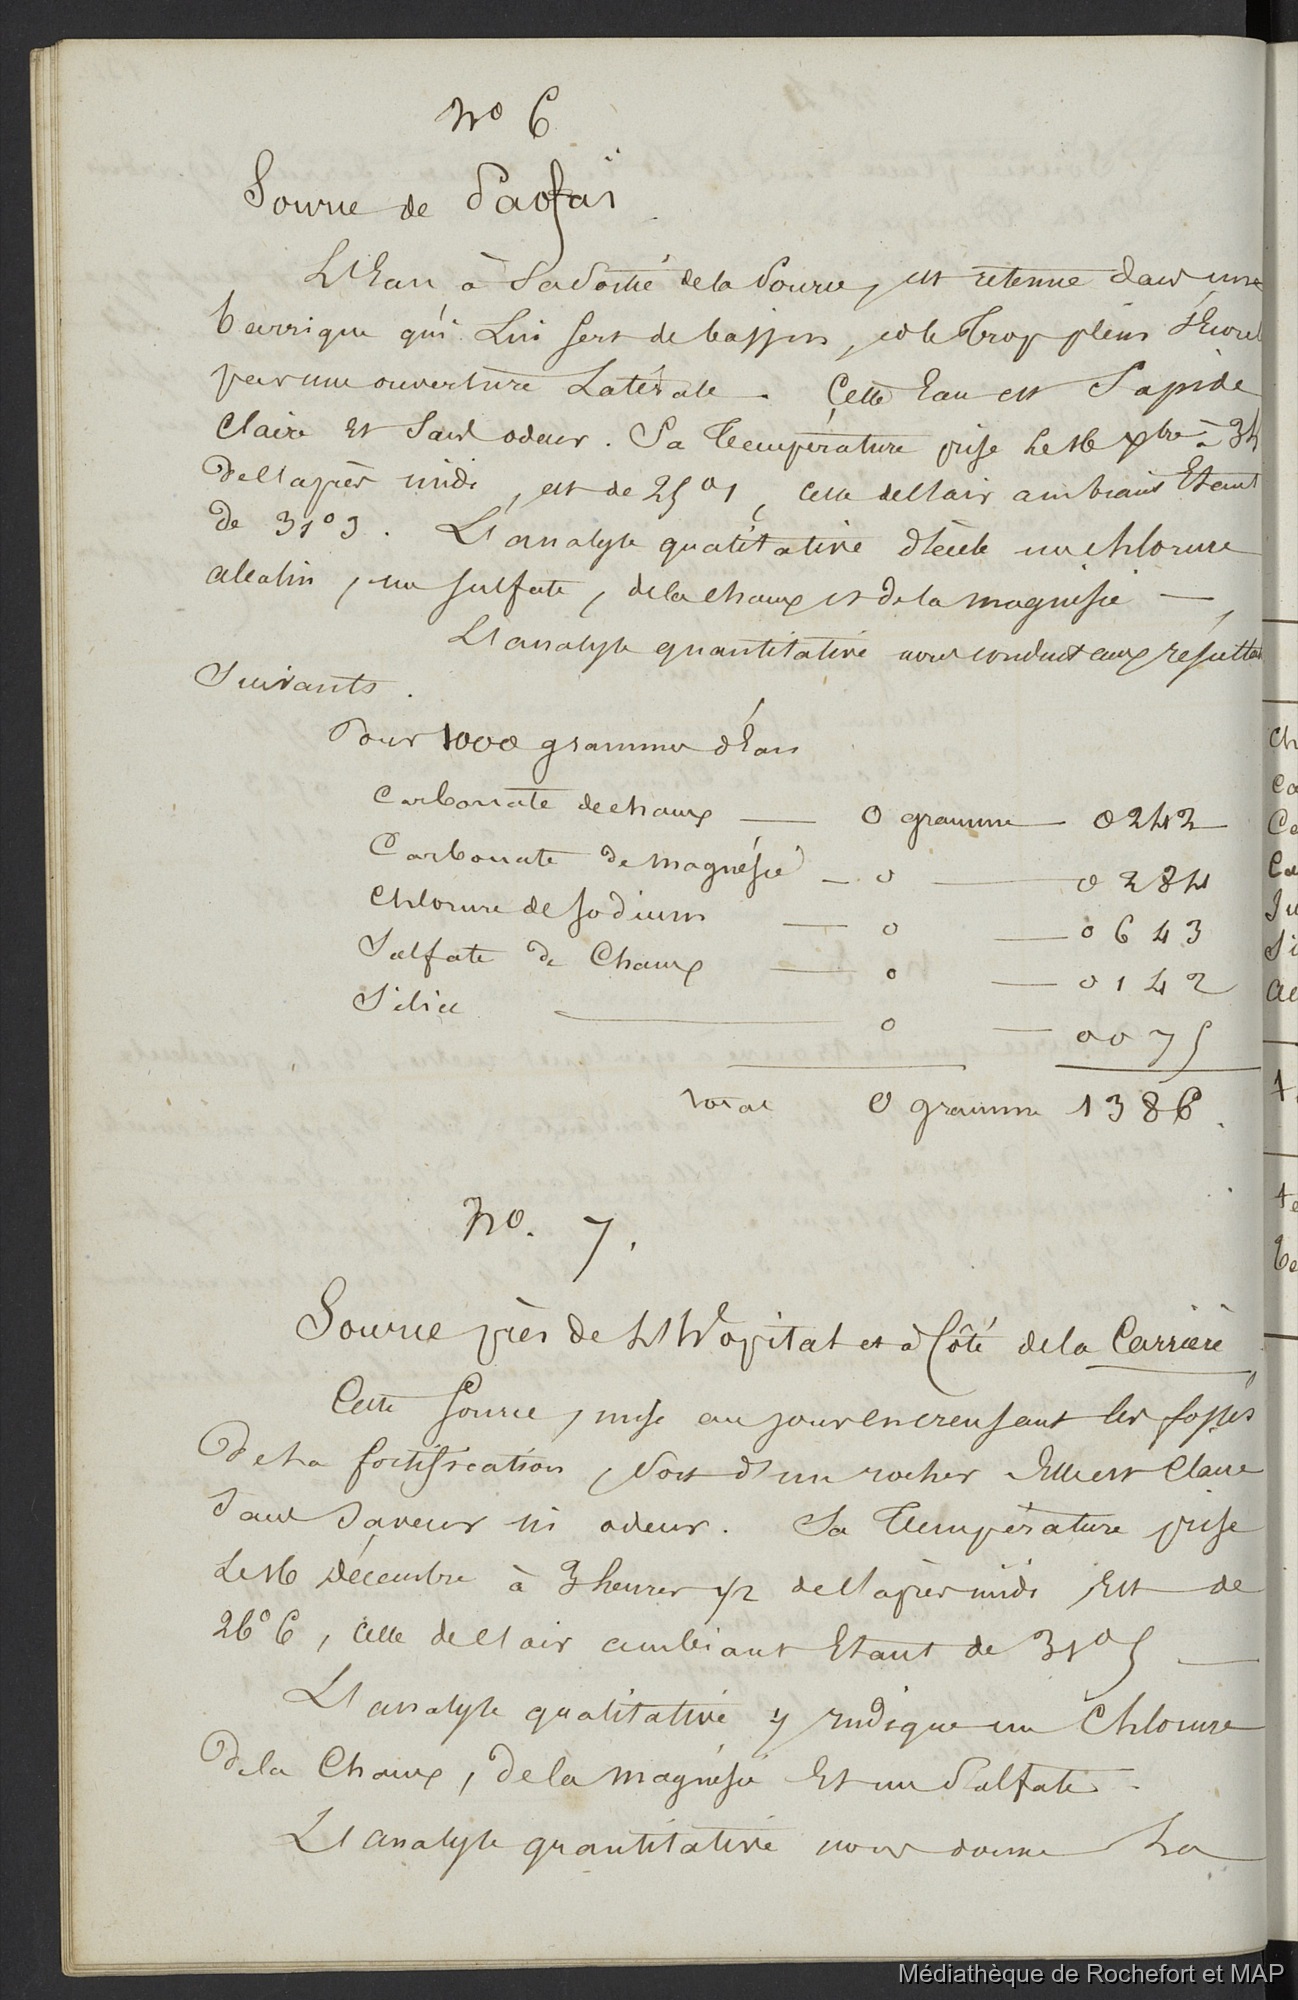 No 6
Source de Paofaï
L'Eau à Sa Sortie de la Source, est retenue dans une
barrique qui Lui sert de bassin, et le trop plein s'Ecoule
par une ouverture Latérale. Cette Eau est Sapide
Claire Et Sans odeur. Sa Température prise Le 16 Xbre à 3h
De l'après midi, est de 25°1, celle de l'air ambiant Etant
de 31°3. L'analyse qualitative décèle un chlorure
alcalin, un sulfate, de la chaux et de la magnésie —
L'analyse quantitative nous conduit aux résultats
Suivants.
Pour 1000 grammes d'Eau
Carbonate de chaux — 0 gramme — 0242
Carbonate de magnésie — 0 — 0284
Chlorure de sodium — 0 — 0643
Sulfate de Chaux — 0 — 0142
Silice — 0 — 0075
Total 0 gramme 1386.
No. 7.
Source près de L'Hopital et à Côté de la Carrière
Cette Source, mise au jour en creusant les fossés
De La fortification, sort d'un rocher Elle est Claire
Sans Saveur ni odeur. Sa Température prise
Le 16 Décembre à 3 heures 1/2 de l'après midi Est de
26°6, celle de l'air ambiant Etant de 31°5 —
L'analyse qualitative y indique un Chlorure
De la Chaux, De la magnésie Et un Sulfate.
L'analyse quantitative nous donne La
Médiathèque de Rochefort et MAP